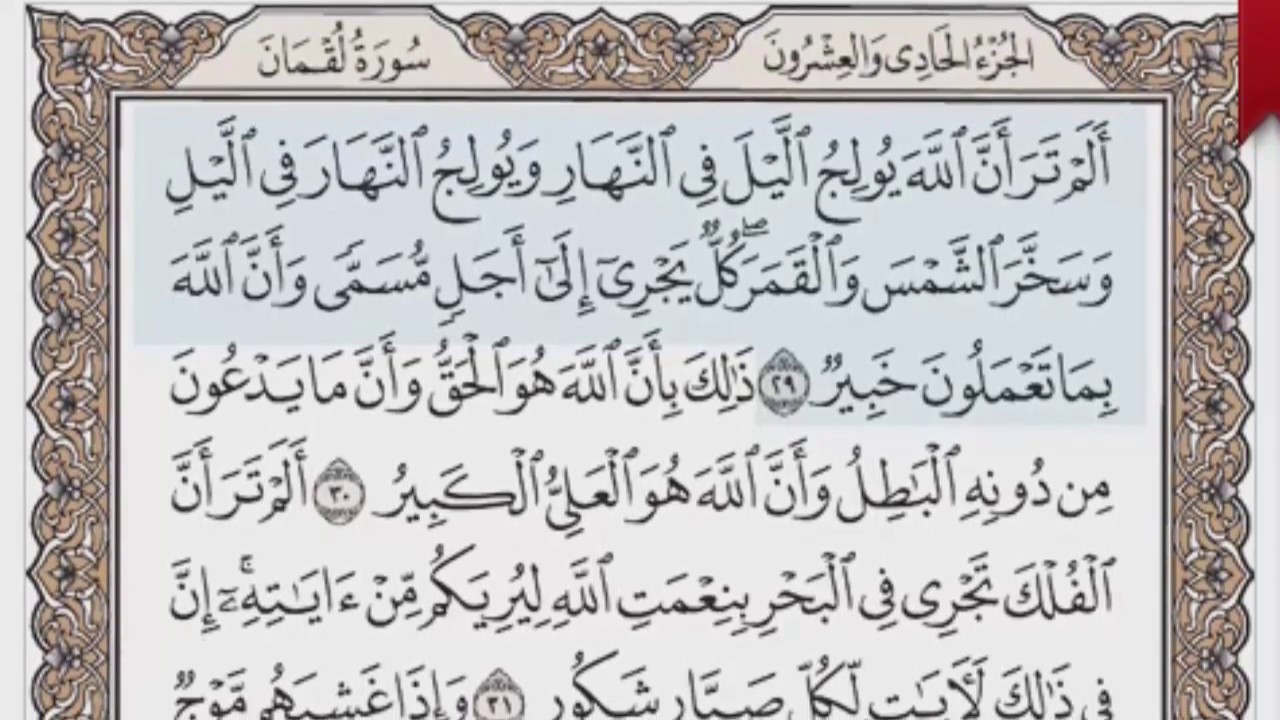 الجُزْءُ الحَادِى وَالعِشْرُونَ
سُورَةُ لُقْمَانَ
أَلَمْ تَرَ أَنَّ ٱللَّهَ يُولِجُ ٱلَّيْلَ فِى ٱلنَّهَارِ وَيُولِجُ ٱلنَّهَارَ فِى ٱلَّيْلِ
وَسَخَّرَ ٱلشَّمْسَ وَٱلْقَمَرَۖ كُلٌّ يَجْرِىٓ إِلَىٰٓ أَجَلٍ مُّسَمًّى وَأَنَّ ٱللَّهَ
بِمَا تَعْمَلُونَ خَبِيرٌ ٢٩ ذَٰلِكَ بِأَنَّ ٱللَّهَ هُوَ ٱلْحَقُّ وَأَنَّ مَا يَدْعُونَ
مِن دُونِهِ ٱلْبَٰطِلُ وَأَنَّ ٱللَّهَ هُوَ ٱلْعَلِىُّ ٱلْكَبِيرُ ٣٠ أَلَمْ تَرَ أَنَّ
ٱلْفُلْكَ تَجْرِى فِى ٱلْبَحْرِ بِنِعْمَتِ ٱللَّهِ لِيُرِيَكُم مِّنْ ءَايَٰتِهِۦٓۚ إِنَّ
فِى ذَٰلِكَ لَءَايَٰتٍ لِّكُلِّ صَبَّارٍ شَكُورٍ ٣١ وَإِذَا غَشِيَهُم مَّوْجٌ